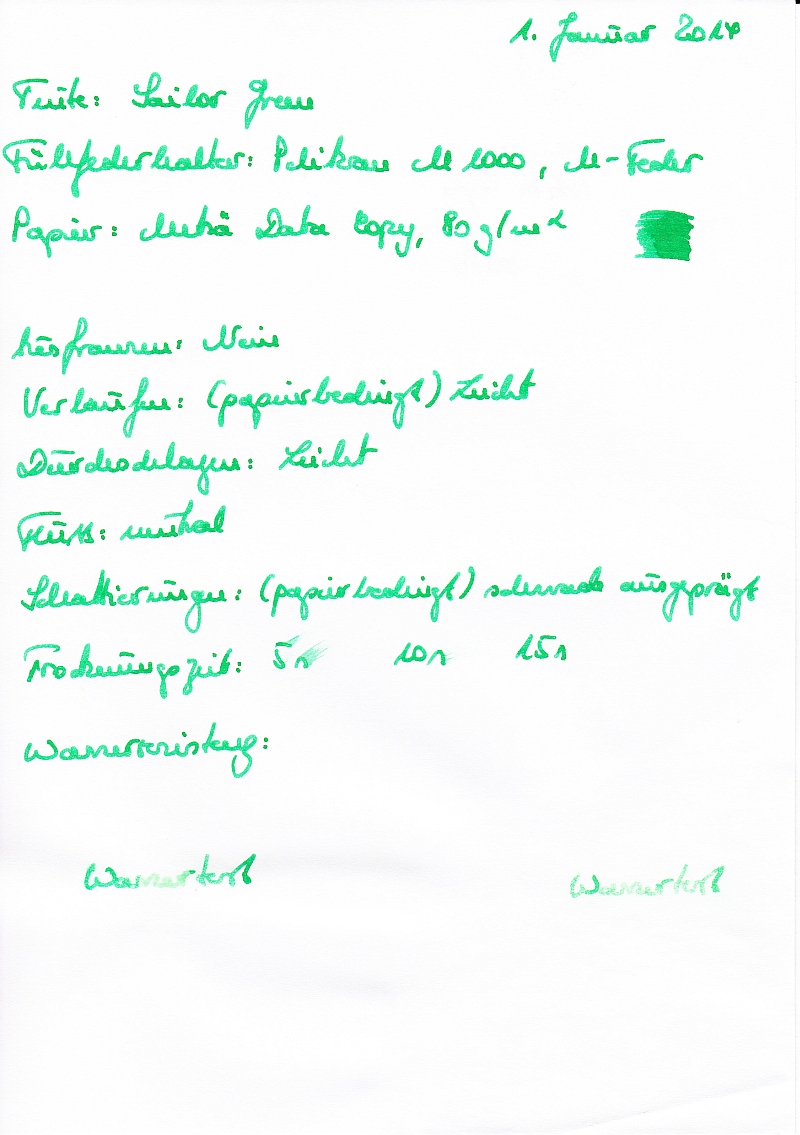 1. Januar 2014
Tinte: Sailor Green
Füllfederhalter: Pelikan M 1000, M-Feder
Papier: Meträ Data Copy, 80 g/m²
Ausfransen: Nein
Verlaufen: (papierbedingt) Leicht
Durchschlagen: Leicht
Fluss: neutral
Schattierungen: (papierbedingt) schwach ausgeprägt
Trockenungszeit: 5s 10s 15s
Wasserfestigk:
Wassertest Wassertest